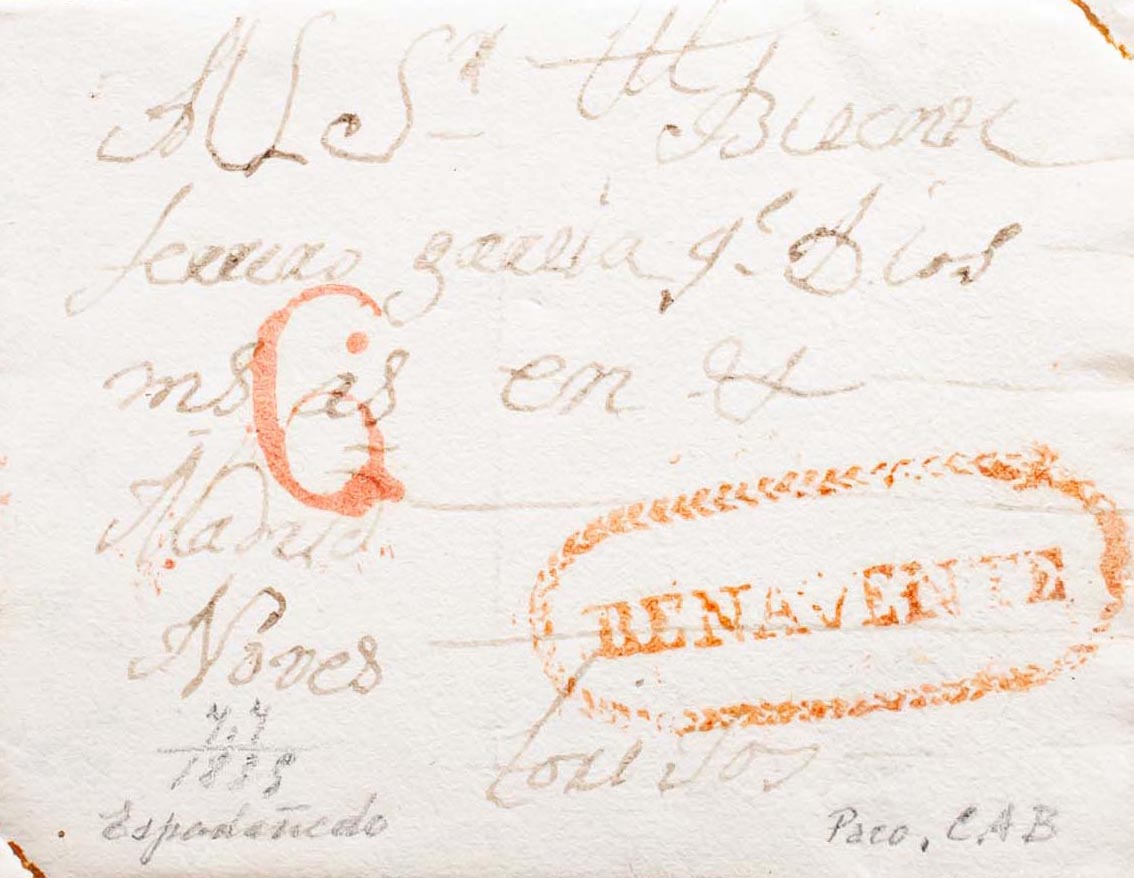 Al Sr Dn Bicente
ferrero garcia qe Dios
ms as en
6
Madrid
BENAVENTE
Nones
7.7
1835
Espadañedo
Paco, C.A.B